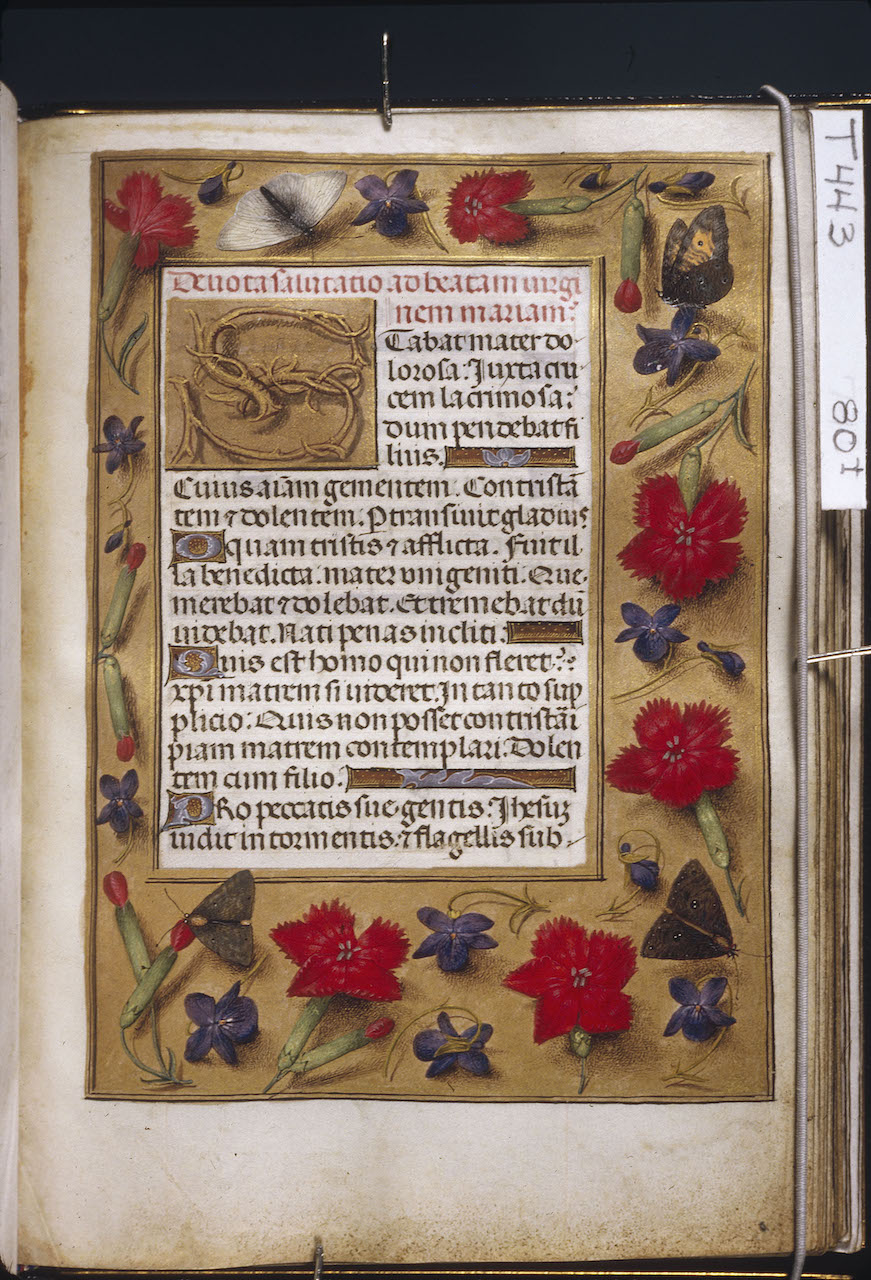 Deuota salutatio ad beatam uirgi
nem mariam:
Stabat mater do-
lorosa: Juxta cru
cem lacrimosa:
dum pendebat fi
lius.
Cuius aīam gementem. Contristā
tem ⁊ dolentem. Ptransiuit gladius
O quam tristis ⁊ afflicta. Fuit il-
la benedicta. mater vnigeniti. Que
merebat ⁊ dolebat. Et tremebat dū
uidebat. Nati penas incliti.
Quis est homo qui non fleret:
xp̄i matrem si uideret. In tanto sup
plicio: Quis non posset contristāi
piam matrem contemplari. Dolen
tem cum filio.
PRo peccatis sue gentis. Jhesuȝ
uidit in tormentis. ⁊ flagellis sub
T443
801